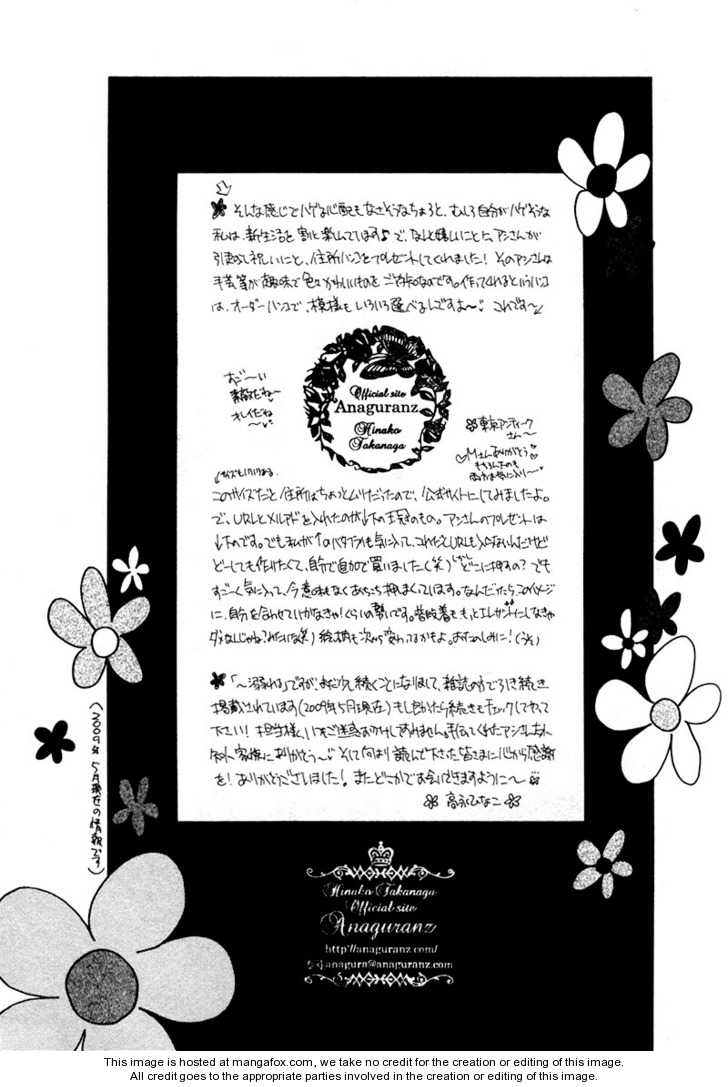 そんな感じでハゲる心配もなさそうなちょろと、むしろ自分がハゲそうな
私は、新生活を割と楽しんでいます♪で、なんと嬉しいことに、アシさんが
引越し祝いにと、住所ハンコをプレゼントしてくれました!そのアシさんは
手芸等が趣味で色々かわいいものをご存知なのです。作ってくれるというハンコ
は、オーダーハンコで、模様もいろいろ選べるんですよ〜 これです〜
すご〜い
素敵だね〜
キレイだね
〜
Official site
Anaguranz
Hinako
Takanaga
東京アンティーク
さん〜
Mさんありがとう
このサイズだと住所はちょっとムリだったので、公式サイトにしてみましたよ。
で、URLとメルアドを入れたのが↓下の王冠のもの。アシさんのプレゼントは
すご〜く気に入って、今意味もなくあちこち押しまくっています。なんだったらこのイメージ
に、自分を合わせていかなきゃ!くらいの勢いです。普段着ももっとエレガントにしなきゃ
絵柄も次から変わってるかもよ。おたのしみに!(うそ)
「〜溺れる」ですが、まだ少し続くことになりまして、雑誌の方で引き続き
掲載されています(2009年5月現在)もし良かったら続きもチェックしてやって
下さい!担当様、いつもご迷惑おかけしてすみません。手伝ってくれたアシさん、友人
家族にありがとう〜 そして何より読んで下さった皆さまに心から感謝
を!ありがとうございました!またどこかでお会いできますように〜
高永ひなこ
(2009年5月現在の情報です)
Hinako Takanaga
Official site
Anaguranz
http://anaguranz.com/
anagura@anaguranz.com
This image is hosted at mangafox.com, we take no credit for the creation or editing of this image.
All credit goes to the appropriate parties involved in the creation or editing of this image.